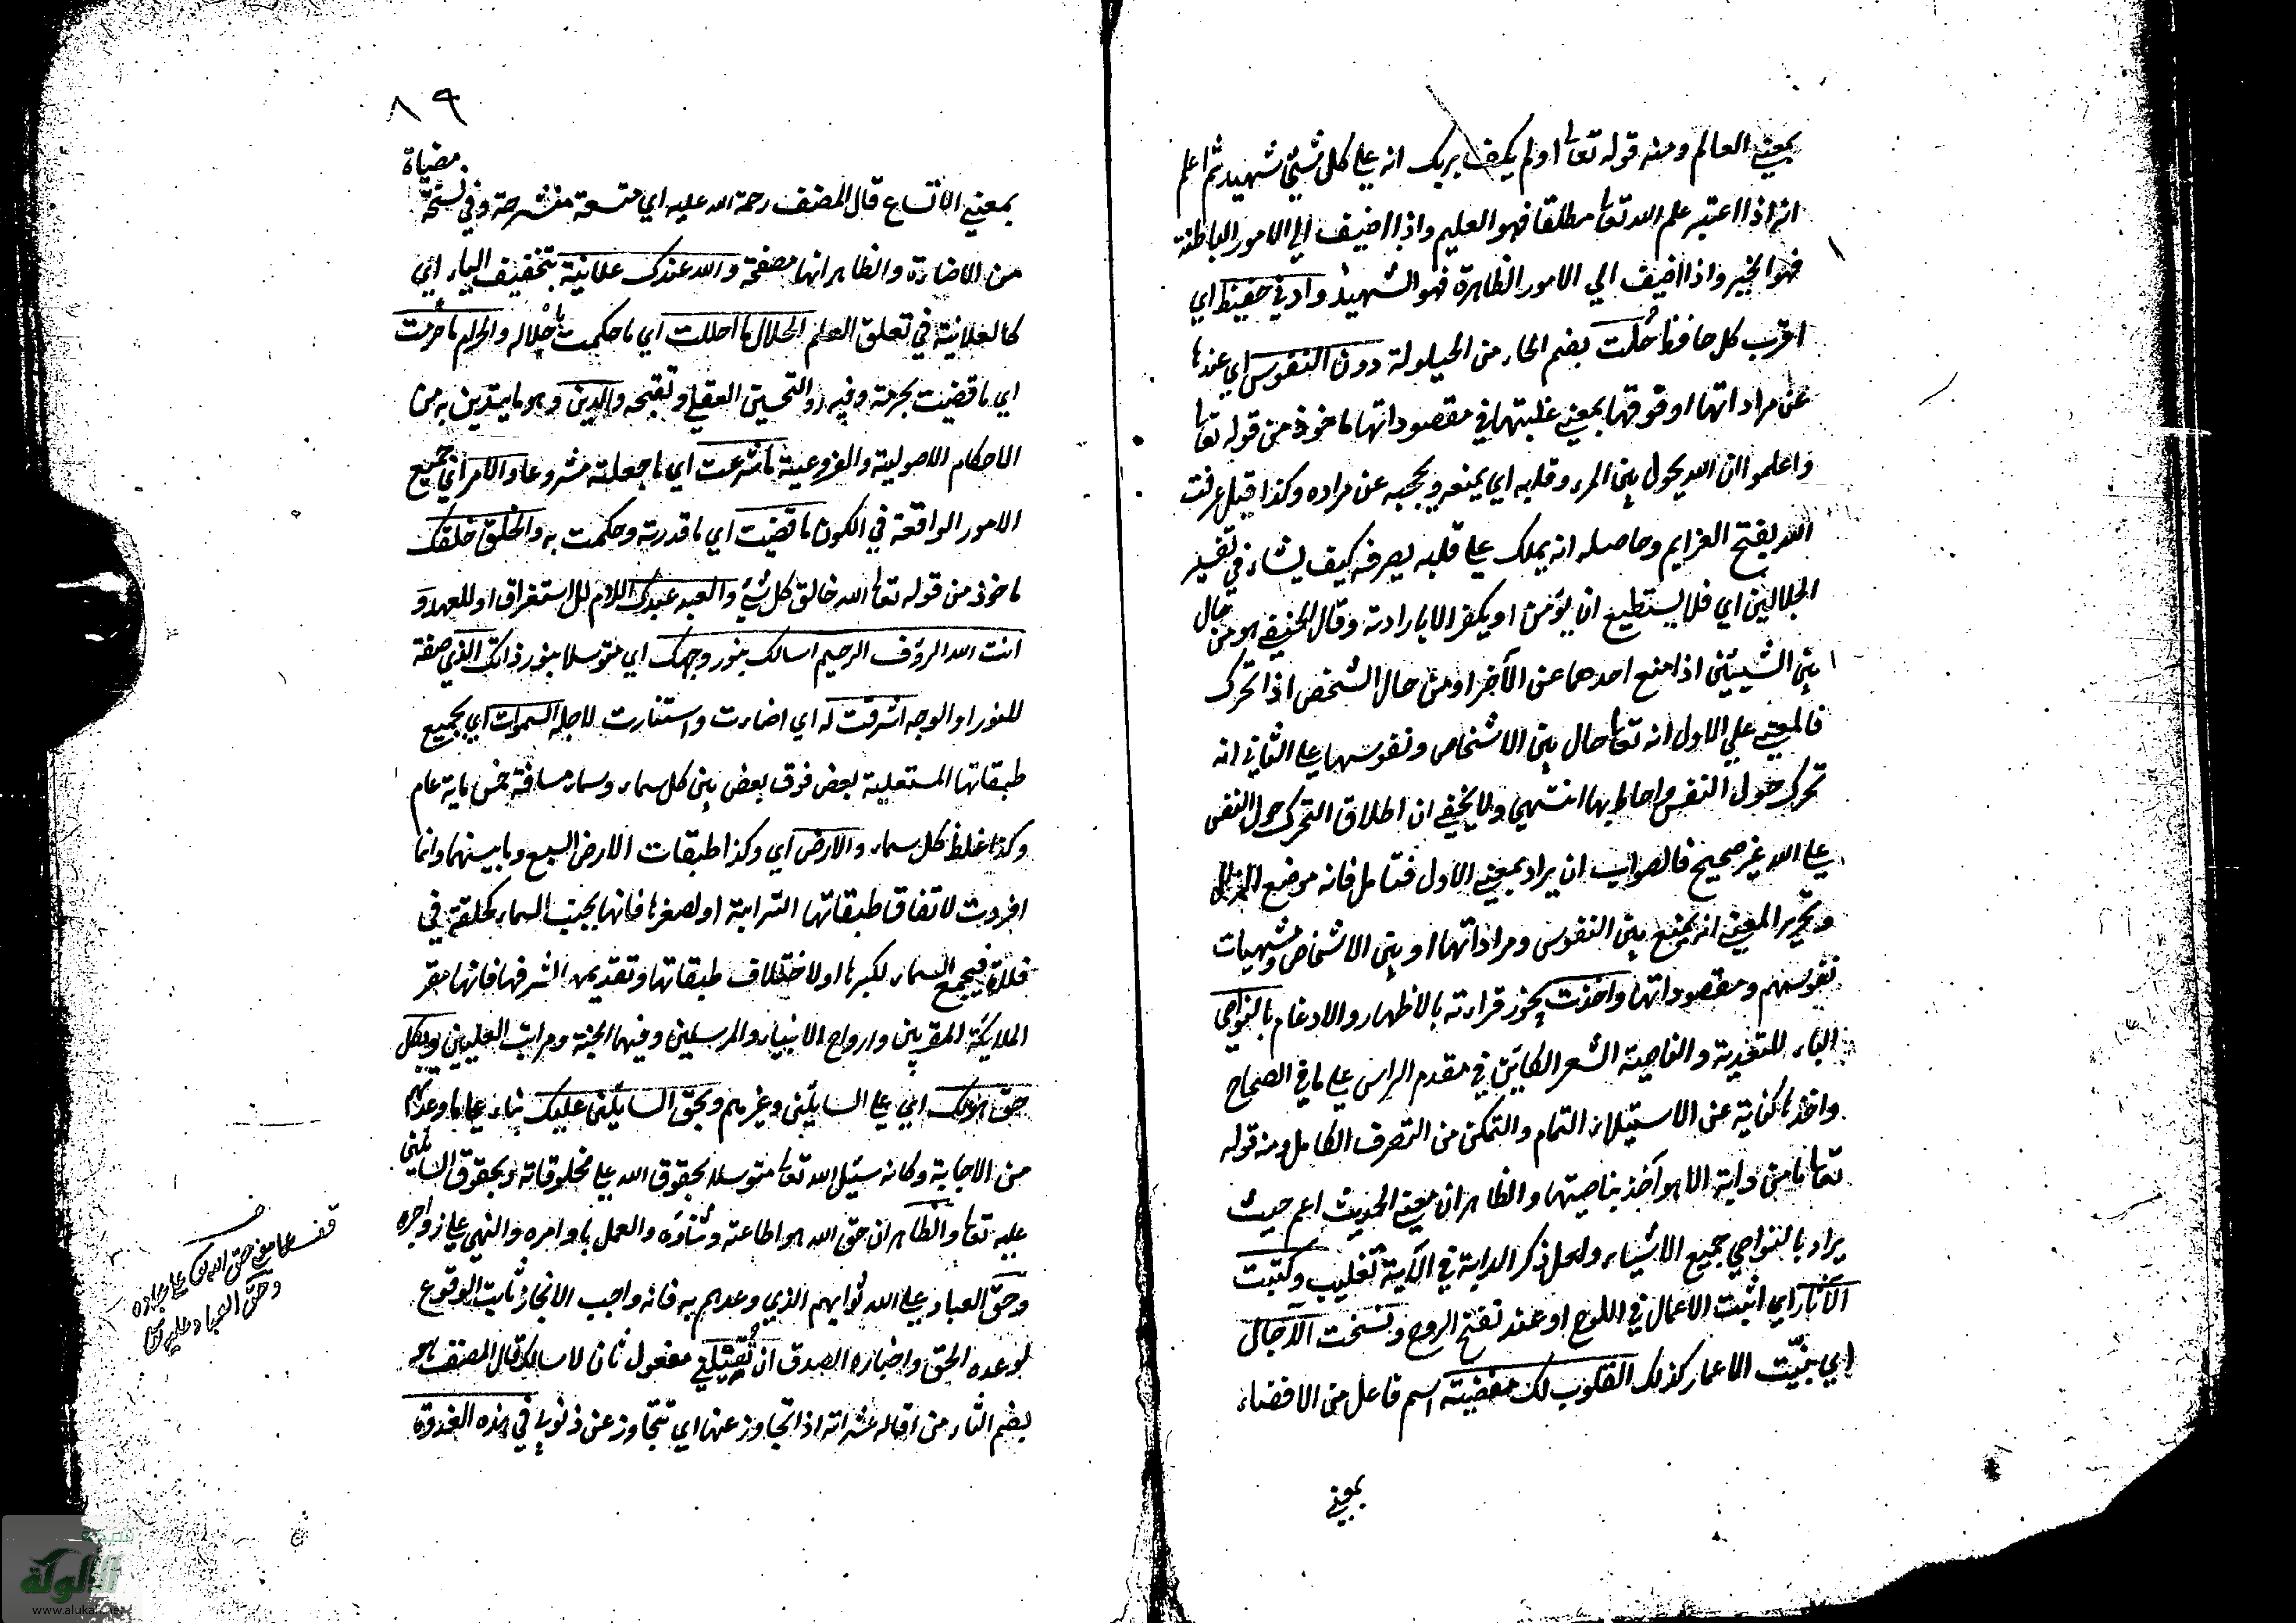 بمعني العالم ومنه قوله تعالى اولم يكف بربك انه علي كل شئ شهيد ثم اعلم
انه اذا اعتبر علم الله تعالى مطلقا فهو العليم واذا اضيف الي الامور الباطنة
فهو الخبير واذا اضيف الي الامور الظاهرة فهو الشهيد وادني حفيظ اي
اقرب كل حافظ حُلت بضم الحاء من الحيلولة دون النفوس اي عندها
عن مراداتها او فوقها بمعني غلبتها في مقصوداتها ماخوذ من قوله تعالى
واعلموا ان الله يحول بين المرء وقلبه اي يمنعه ويحجبه عن مراده وكذا قيل عرفت
الله بفتح العزايم وحاصله انه يملك علي قلبه يصرفه كيف يشاء في تفسير
الجلالين اي فلا يستطيع ان يؤمن او يكفر الا بارادته وقال الحنفي هو من حال
بين الشيئين اذا منع احدهما عن الآخر او من حال الشخص اذا تحرك
فالمعني علي الاول انه تعالى حال بين الاشخاص ونفوسها وعلي الثاني انه
تحرك حول النفس واحاط بها انتهي ولا يخفي ان اطلاق التحرك حول النفس
علي الله غير صحيح فالصواب ان يراد بمعني الاول فتامل فانه موضع الزلل
وتحرير المعني انه يمنع بين النفوس ومراداتها او بين الاشخاص ومشتهيات
نفوسهم ومقصوداتها واخذت يجوز قراءته بالاظهار والادغام بالنواصي
الباء للتعدية والناصية الشعر الكاين في مقدم الراس علي ما في الصحاح
واخذها كناية عن الاستيلاء التام والتمكن من التصرف الكامل ومنه قوله
تعالى ما من دابة الا هو آخذ بناصيتها والظاهر ان معني الحديث اعم حيث
يراد بالنواصي جميع الاشياء ولعل ذكر الدابة في الآية تغليب وكتبت
الآثار اي اثبت الاعمال في اللوح او عند نفخ الروح ونسخت الآجال
اي بنيت الاعمار كذلك القلوب لك مفضية اسم فاعل من الافضاء
بمعني
٨٩
بمعني الاتساع قال المصنف رحمة الله عليه اي متسعة منشرحة وفي نسخة مضياة
من الاضاءة والظاهر انها مصحفة والله عندك علانية بتخفيف الياء اي
كالعلانية في تعلق العلم الحلال ما احللت اي ما حكمت باحلاله والحرام ما حرمت
اي ما قضيت بحرمة وفيه رد التحسين العقلي وتقبيحه والدين وهو ما يتدين به من
الاحكام الاصولية والفروعية ما شرعت اي ما جعلته مشروعا والامر اي جميع
الامور الواقعة في الكون ما قضيت اي ما قدرته وحكمت به والخلق خلقك
ماخوذ من قوله تعالى الله خالق كل شئ والعبد عبدك اللام للاستغراق او للعهد و
انت الله الرؤف الرحيم اسالك بنور وجهك اي متوسلا بنور ذاتك الذي صفة
للنور او الوجه اشرقت له اي اضاءت واستنارت لاجله السموات اي بجميع
طبقاتها المستعلية بعض فوق بعض بين كل سماء وسماء مسافة خمس ماية عام
وكذا غلظ كل سماء والارض اي وكذا طبقات الارض السبع وما بينهما وانما
افردت لاتفاق طبقاتها الترابية او لصغرها فانها بجنب السماء كحلقة في
فلاة فيجمع السماء لكبرها او لاختلاف طبقاتها وتقديمه لشرفها فانها مقر
الملايكة المقربين وارواح الانبياء والمرسلين وفيها الجنة ومراتب العليين وبكل
حق هو لك اي علي السايلين وغيرهم وبحق السايلين عليك بناء علي ما وعدتهم
من الاجابة وكانه سئل الله تعالى متوسلا بحقوق الله علي مخلوقاته وبحقوق السايلين
عليه تعالى والظاهر ان حق الله هو اطاعته وثناؤه والعمل باوامره والنهي علي زواجره
وحق العباد علي الله ثوابهم الذي وعدهم به فانه واجب الانجاز ثابت الوقوع
لوعده الحق واخباره الصدق ان تُقيلني مفعول ثان لاسالك قال المصنف هو
بضم التاء من اقاله عثراته اذا تجاوز عنها اي تتجاوز عن ذنوبي في هذه الغدوة
قف علي معني حق الله تعالى علي عباده
وحق العباد عليه تعالى
شبكة
الألوكة
www.alukah.net